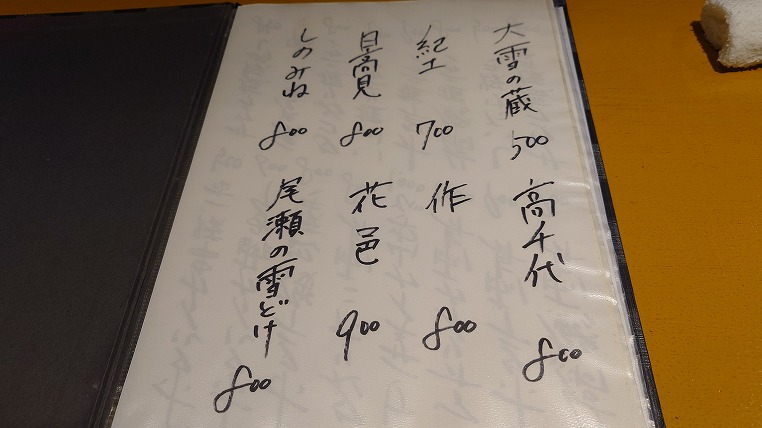 大雪の蔵 500
紀土 700
日高見 800
しのみね 800
高千代 800
作 800
花邑 900
尾瀬の雪どけ 800